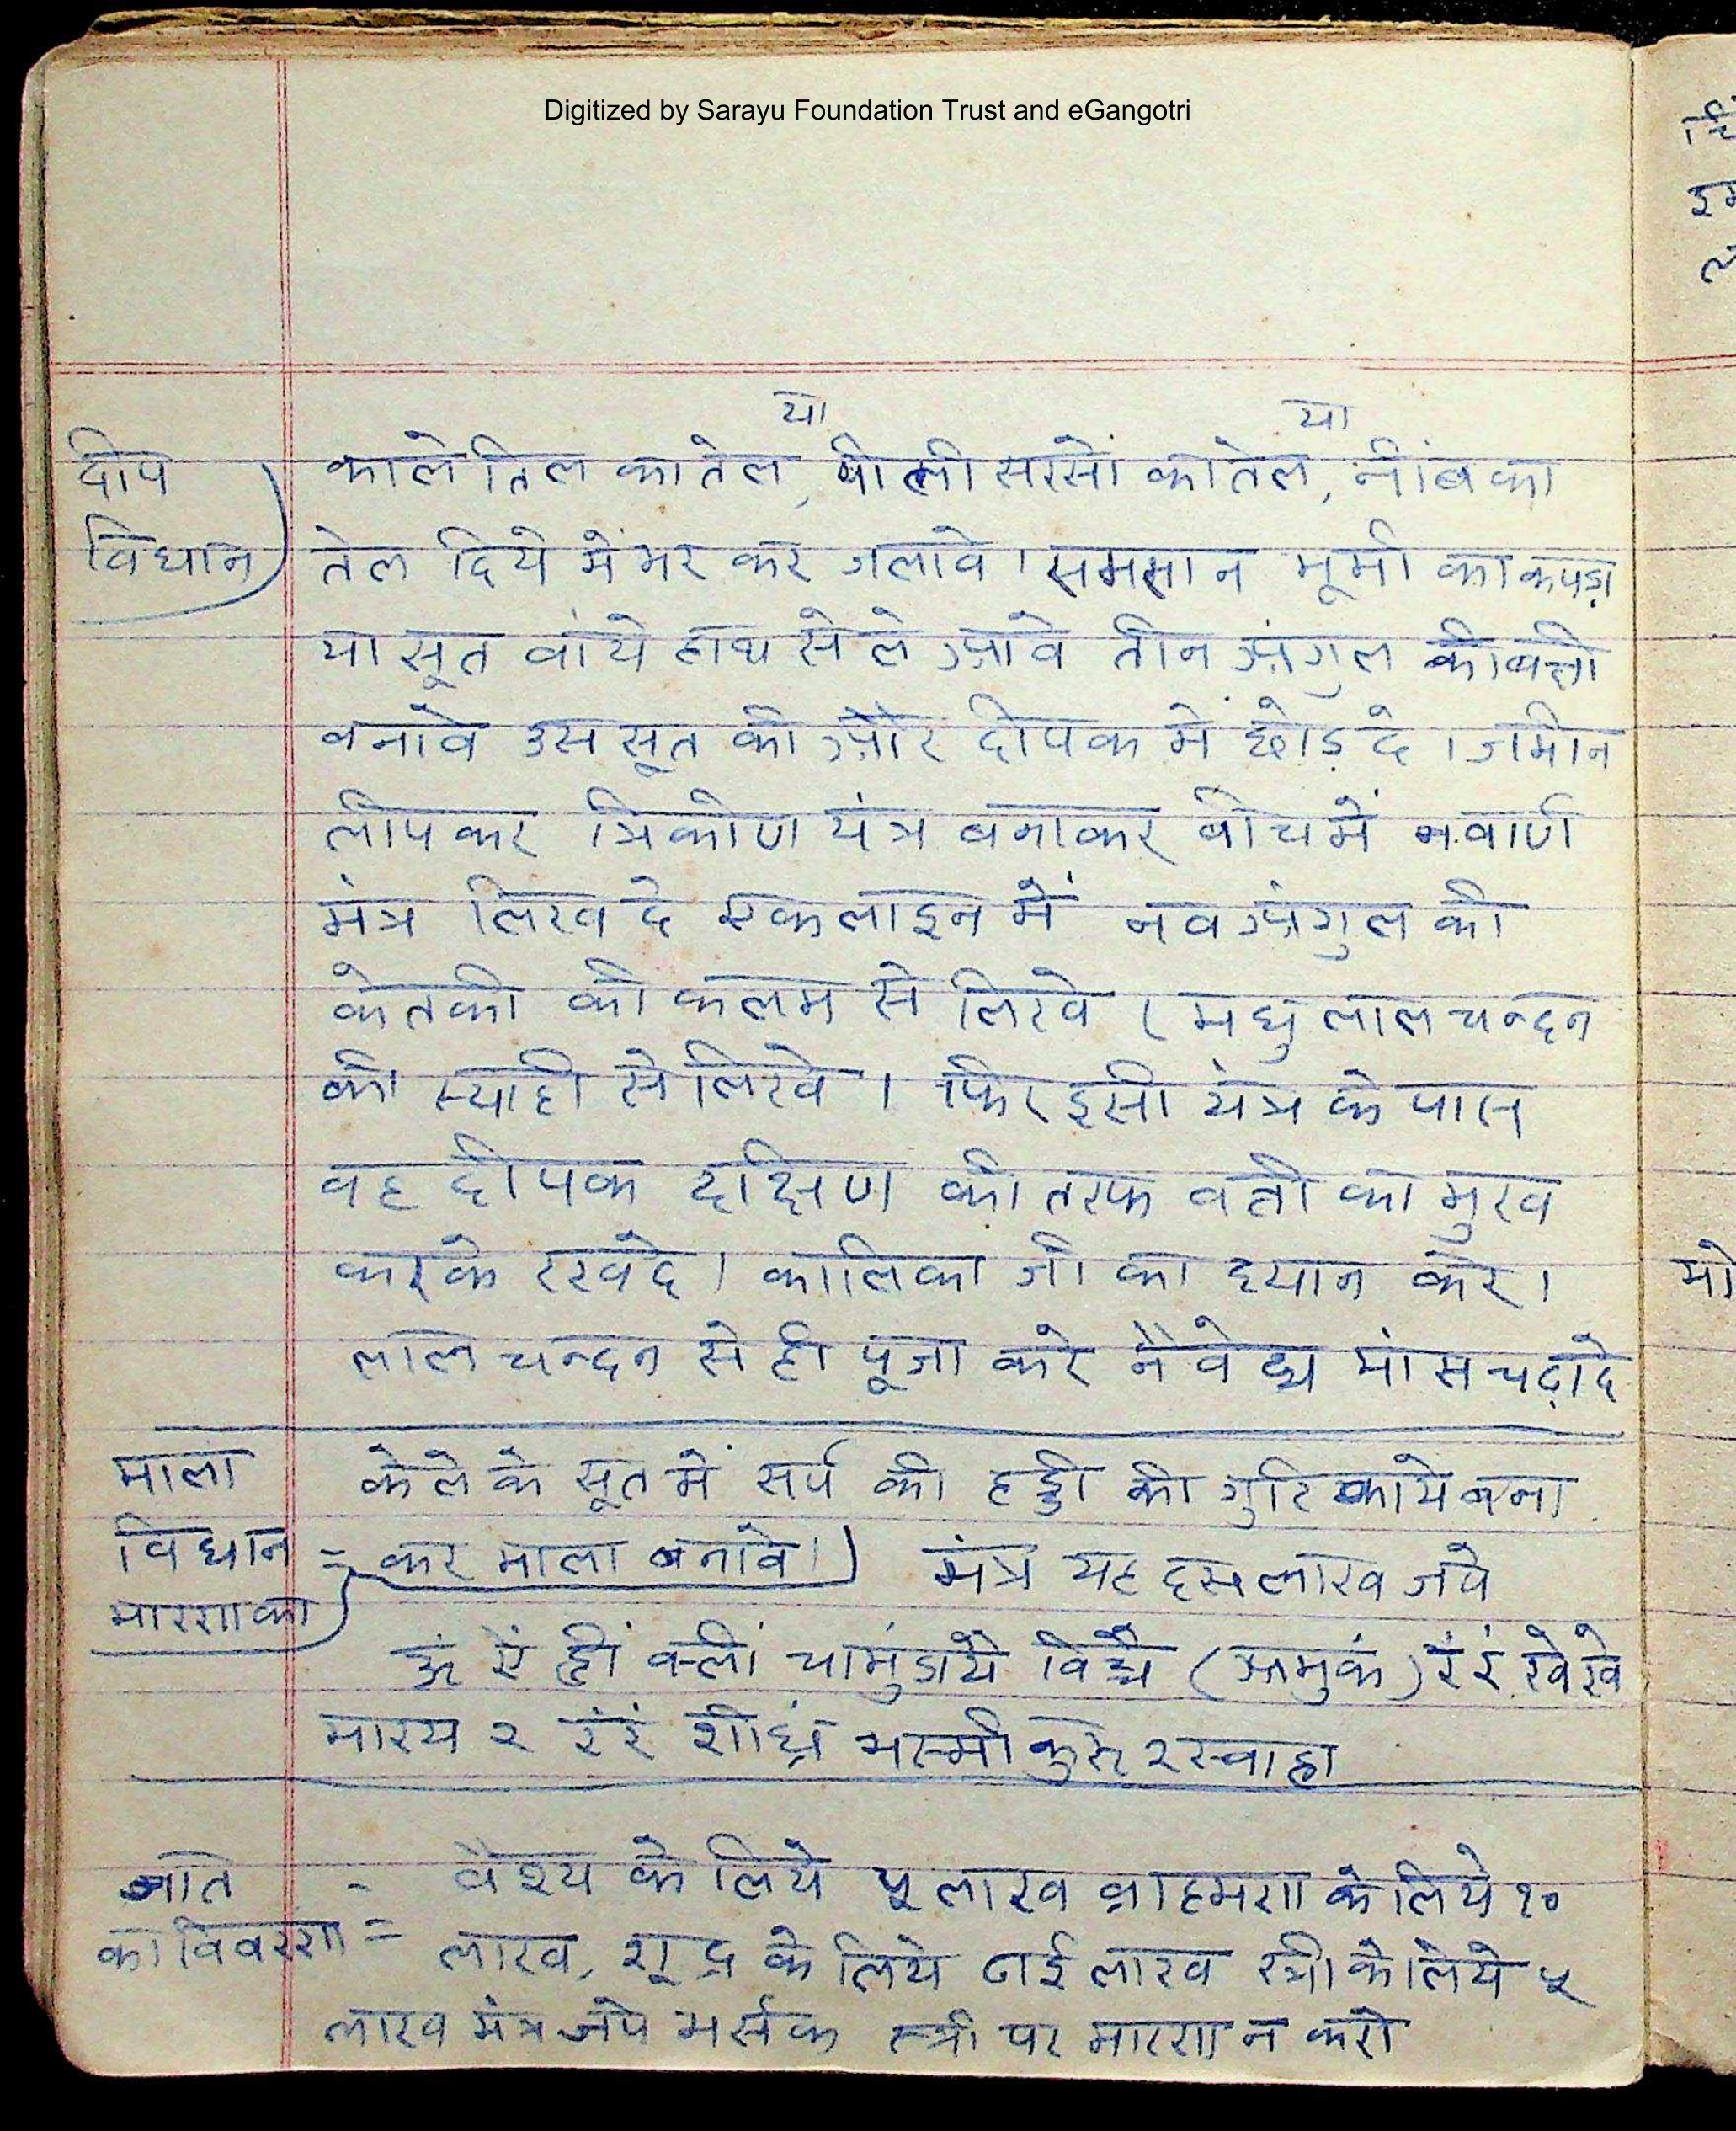 Digitized by Sarayu Foundation Trust and eGangotri
या या
दीप काले तिल का तेल, पीली सरसों का तेल, नींब का
विधान तेल दिये में भर कर जलावे। समसान भूमी का कपड़ा
या सूत वांये हाथ से ले आवे तीन अंगुल की बत्ती
बनावे उस सूत की और दीपक मे छोड़ दे। जमीन
लीपकर त्रिकोण यंत्र बनाकर बीच में नवार्ण
मंत्र लिख दे एक लाइन में नव अंगुल की
केतकी की कलम से लिखे (मधु लाल चन्दन
की स्याही से लिखे। फिर इसी यंत्र के पास
वह दीपक दक्षिण की तरफ वत्ती का मुख
करके रखदे। कालिका जी का ध्यान करे।
लाल चन्दन से ही पूजा करे नैवेद्य मांस चढ़ादे
माला केले के सूत में सर्प की हड्डी की गुटिकाये बना
विधान = कर माला बनावे।) मंत्र यह दस लाख जपे
मारण का
ॐ ऐं ह्रीं क्लीं चामुंडायै विच्चै (अमुकं) रं रं खे खे
मारय २ रं रं शीघ्रं भस्मी कुरु २ स्वाहा
जाति - वैश्य के लिये ५ लाख ब्राहमण के लिये १०
का विवरण = लाख, शूद्र के लिये ढाई लाख स्त्री के लिये ५
लाख मंत्र जपे भर्सक स्त्री पर मारण न करो